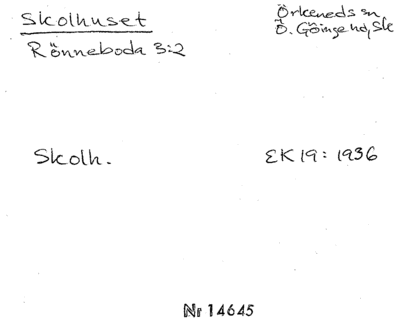 Skolhuset
Örkeneds sn
Rönneboda 3:2
Ö. Göinge hd, Sk
Skolh.
EK 19: 1936
Nr 14645